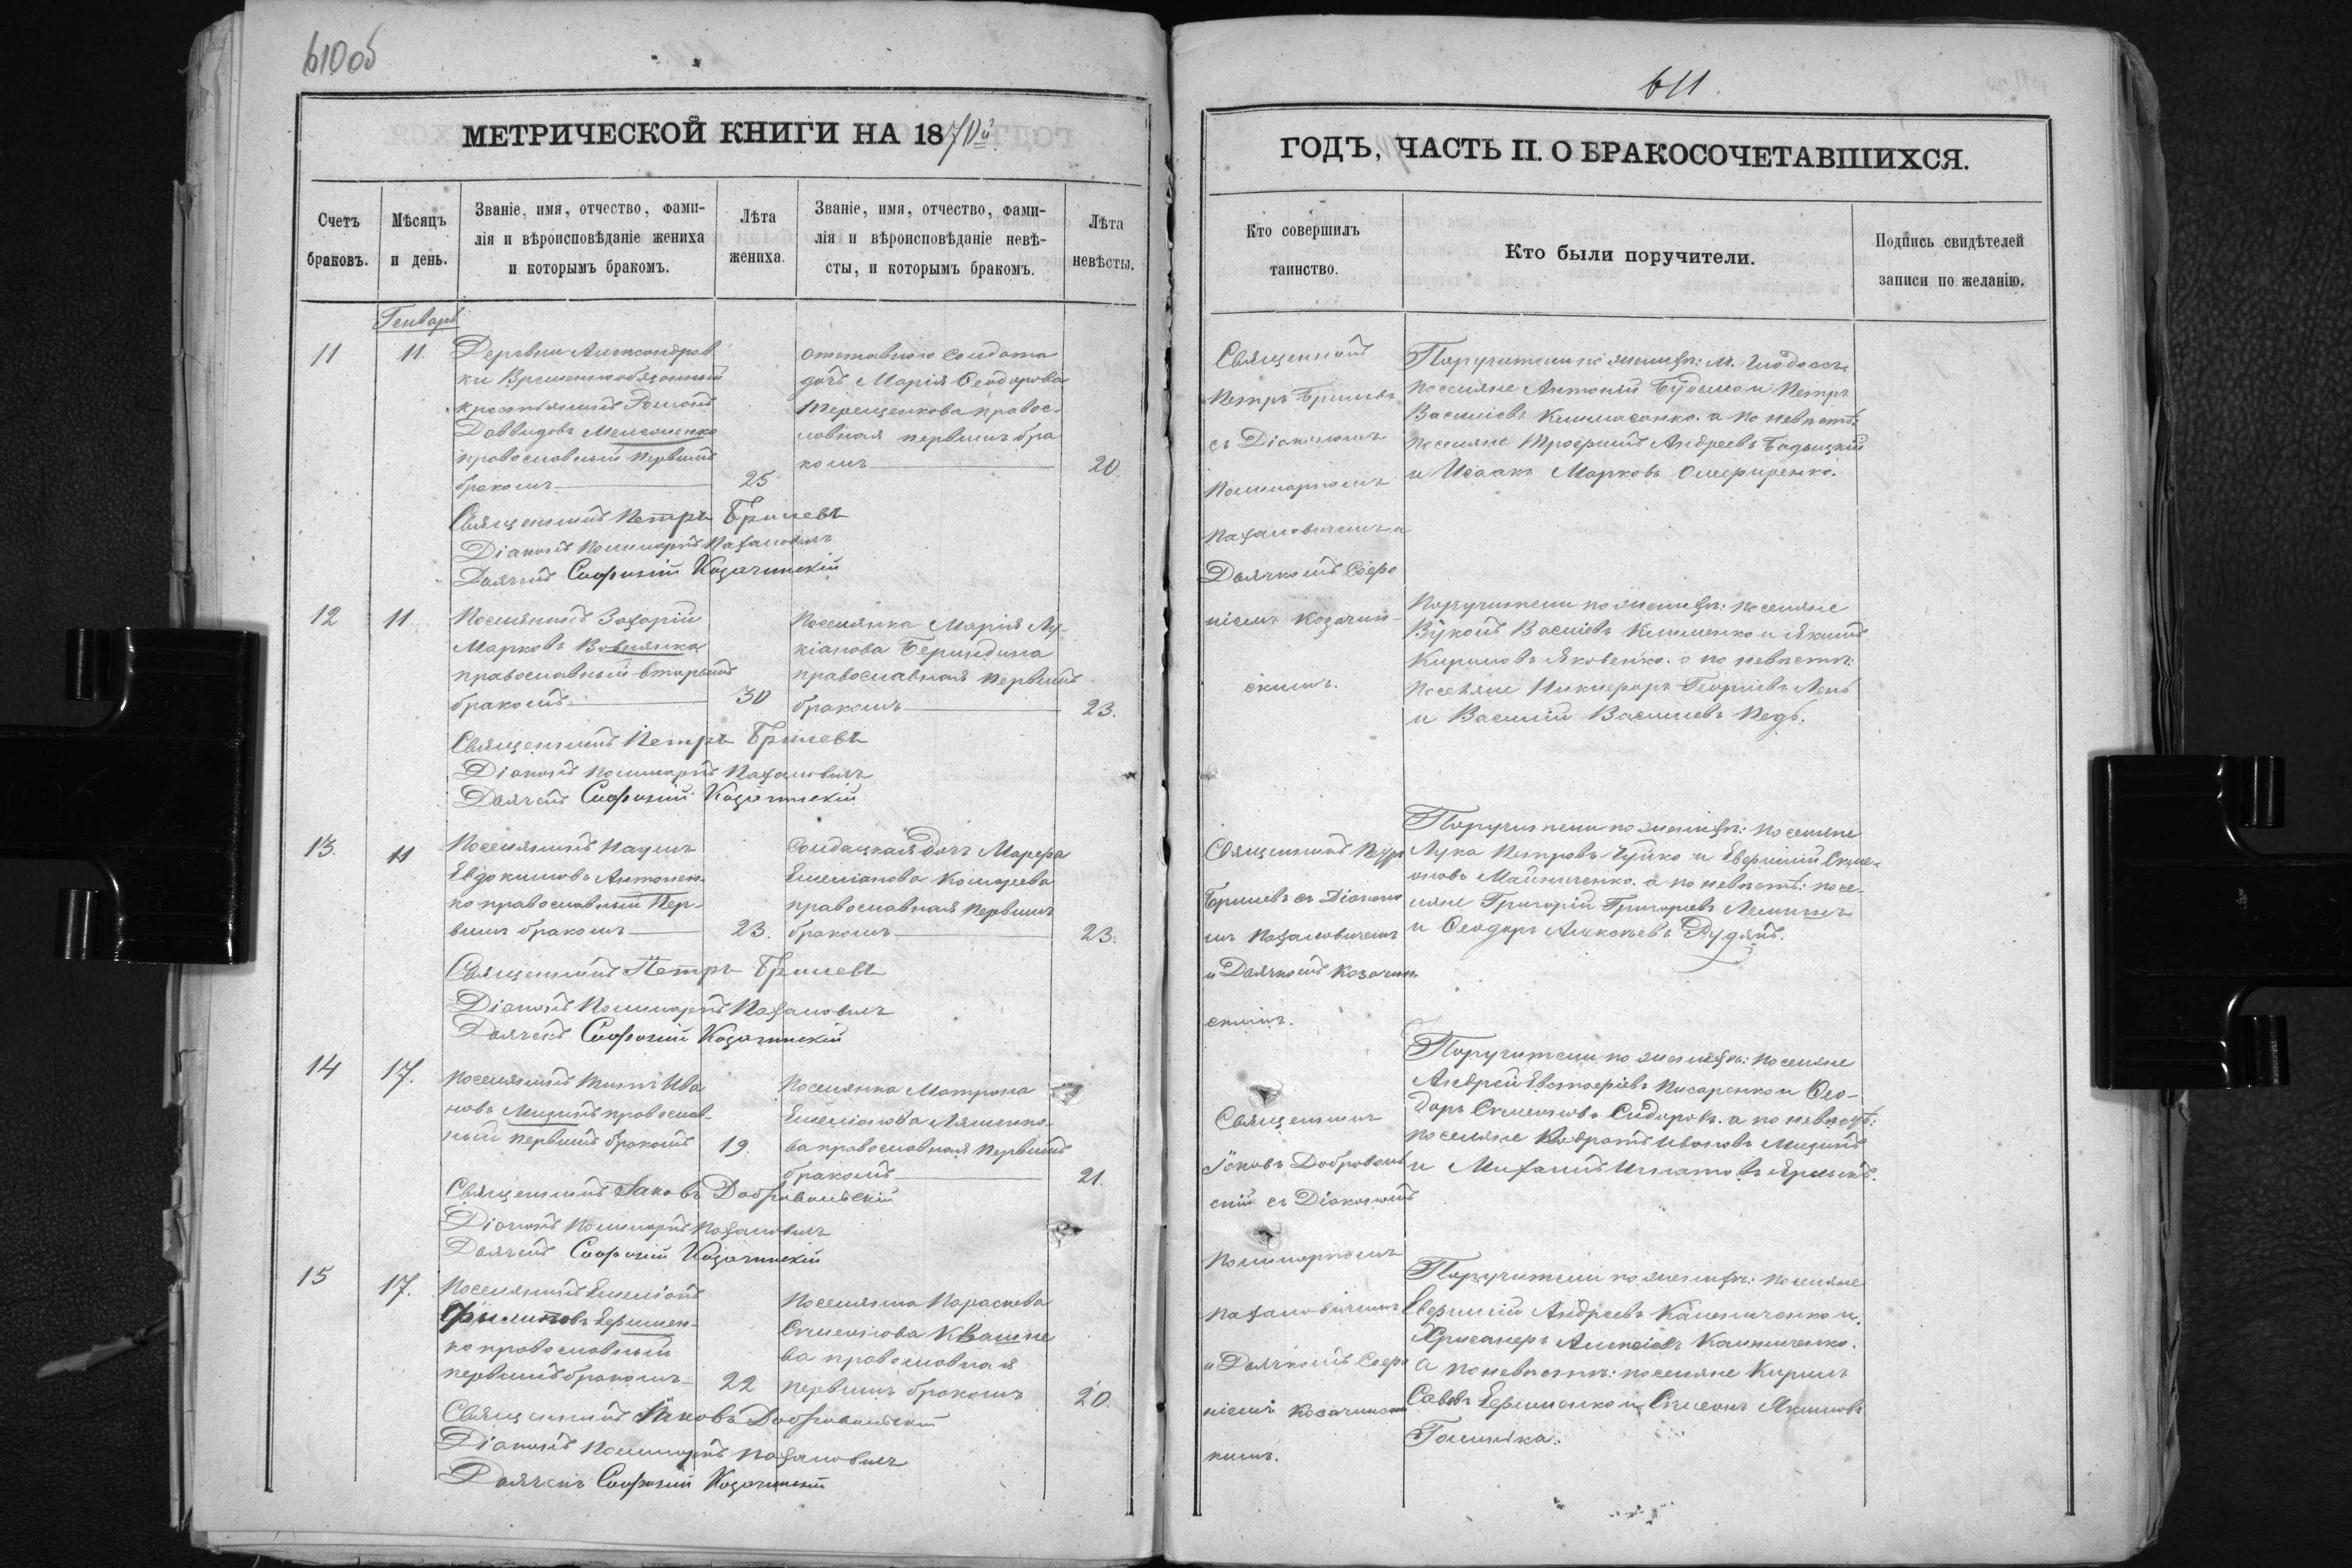 610 об
МЕТРИЧЕСКОЙ КНИГИ НА 1870й
Счетъ браковъ.
Мѣсяцъ и день.
Званіе, имя, отчество, фами-
лія и вѣроисповѣданіе жениха
и которымъ бракомъ.
Лѣта жениха.
Званіе, имя, отчество, фами-
лія и вѣроисповѣданіе невѣ-
сты, и которымъ бракомъ.
Лѣта невѣсты.
Генварь
11
11.
Деревни Александров
ки Временнообязанный
крестьянинъ
Даввидовъ
православный первымъ
бракомъ
25
отставного солдата
дочь Марія Ѳеодорова
Терещенкова правос-
лавная первымъ бра
комъ
20.
Священникъ Петръ Бриневъ
Діаконъ
Дьячекъ Софроній Козачинскій
12
11.
Поселянинъ Захарій
Марковъ
православный вторымъ
бракомъ
30
Поселянка Марія Лу-
кіанова Бериндина
православная первымъ
бракомъ
23.
Священникъ Петръ Бриневъ
Діаконъ
Дьячекъ Софроній Козачинскій
13.
11
Поселянинъ Наумъ
Евдокимовъ Антонен-
ко православный Пер-
вымъ бракомъ
23.
Солдатская дочь Марфа
Емеліанова
православная первымъ
бракомъ
23.
Священникъ Петръ Бриневъ
Діаконъ
Дьячекъ Софроній Козачинскій
14
17.
Поселянинъ Титъ Ива
новъ Мицинъ православ-
ный первымъ бракомъ
19.
Поселянка Матрона
Емеліанова Ляшенко-
ва православная первымъ
бракомъ
21.
Священникъ Іаковъ Добровольскій
Діаконъ
Дьячекъ Софроній Козачинскій
15
17.
Поселянинъ Емеліанъ
Филиповъ Ефимен-
ко православный
первымъ бракомъ
22
Поселянка Параскева
Симеонова Квашне
ва православная
первымъ бракомъ
20.
Священникъ Іаковъ Добровольскій
Діаконъ
Дьячекъ Софроній Козачинскій
611.
ГОДЪ, ЧАСТЬ II. О БРАКОСОЧЕТАВШИХСЯ.
Кто совершилъ таинство.
Кто были поручители.
Подпись свидѣтелей записи по желанію.
Священникъ
Петръ Бриневъ
съ Діакономъ
Дьячкомъ Софро
ніемъ Козачин-
скимъ.
Поручители по женихѣ:
поселяне Антоній и Петръ
а по невѣстѣ:
поселяне Трофимъ Андреевъ
и Исаакъ Марковъ
Поручители по женихѣ: поселяне
Клименко и Якимъ
Кириловъ Яковенко. а по невѣстѣ:
поселяне Никифоръ Георгіевъ Лень
и Василій Васильевъ
Священникъ Петръ
Бриневъ съ Діаконо
мъ
и Дьячкомъ Козачин
скимъ.
Поручители по женихѣ: поселяне
Лука Петровъ Чуйко и Евфимій Симе-
оновъ а по невѣстѣ: посе-
ляне Григорій Григорьевъ
и Ѳеодоръ Алексѣевъ
Священникъ
Іаковъ Доброволь
скій съ Діакономъ
и Дьячкомъ Софро
ніемъ Козачинс
кимъ.
Поручители по женихѣ: поселяне
Андрей Евстафіевъ Писаренко и Ѳео-
доръ Симеоновъ Сидоровъ. а по невѣстѣ:
поселяне Кодратъ Ивановъ Мицинъ
и Михаилъ
Поручители по женихѣ: поселяне
Евфимій Андреевъ Калениченко и
Хрисанфъ Алексіевъ Калениченко.
а по невѣстѣ: поселяне Кирилъ
Савовъ Ефименко и Симеонъ Якимовъ